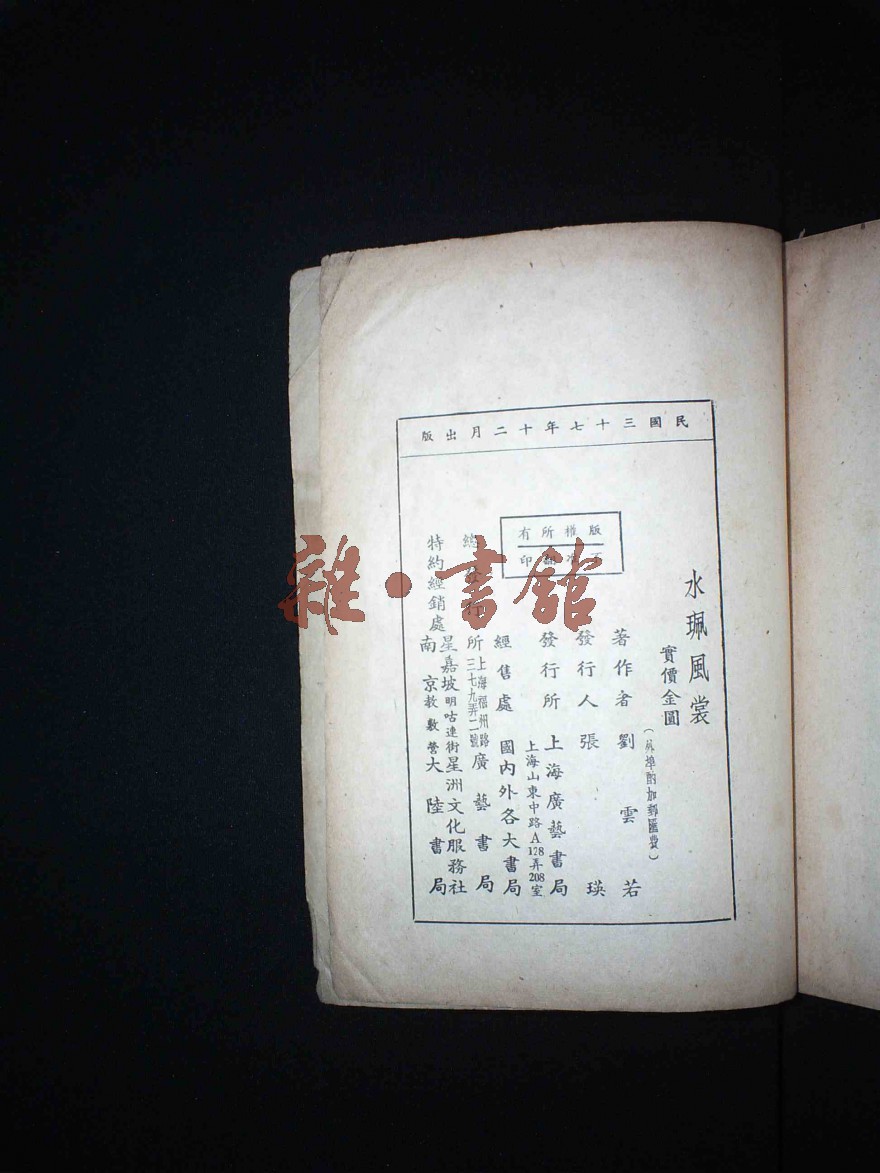 民國三十七年十二月出版
版權所有
印
水珮風裳
實價金圓
(外埠酌加郵匯費)
著作者 劉雲若
發行人 張瑛
發行所 上海廣藝書局
上海山東中路A128弄208室
經售處 國內外各大書局
總發行所 上海福州路三七九弄二號 廣藝書局
特約經銷處 星嘉坡明咕連街星洲文化服務社
南京教敷營大陸書局
雜·書館